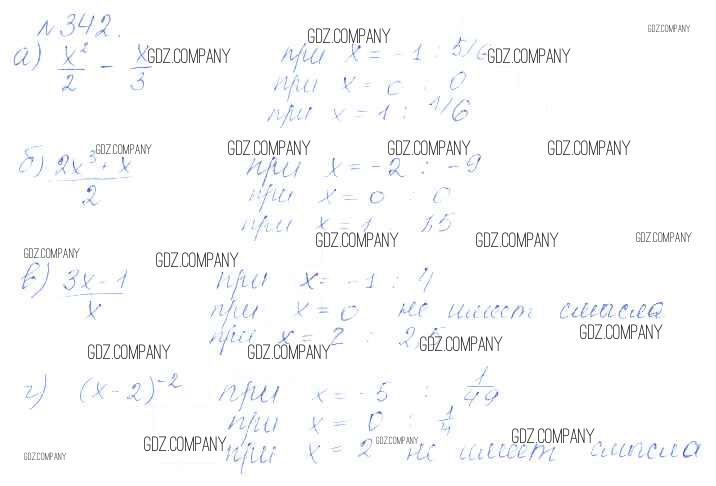 №342.
GDZ.COMPANY
GDZ.COMPANY
а) x²/2 - x/3 при x = -1 : 5/6
GDZ.COMPANY
GDZ.COMPANY
при x = 0 : 0
при x = 1 : 1/6
GDZ.COMPANY
GDZ.COMPANY
GDZ.COMPANY
GDZ.COMPANY
б) (2x³ + x)/2 при x = -2 : -9
при x = 0 : 0
при x = 1 : 1,5
GDZ.COMPANY
GDZ.COMPANY
GDZ.COMPANY
GDZ.COMPANY
GDZ.COMPANY
в) (3x - 1)/x при x = -1 : 4
при x = 0 не имеет смысла
при x = 2 : 2,5
GDZ.COMPANY
GDZ.COMPANY
GDZ.COMPANY
GDZ.COMPANY
г) (x - 2)⁻² при x = -5 : 1/49
при x = 0 : 1/4
при x = 2 не имеет смысла
GDZ.COMPANY
GDZ.COMPANY
GDZ.COMPANY
GDZ.COMPANY